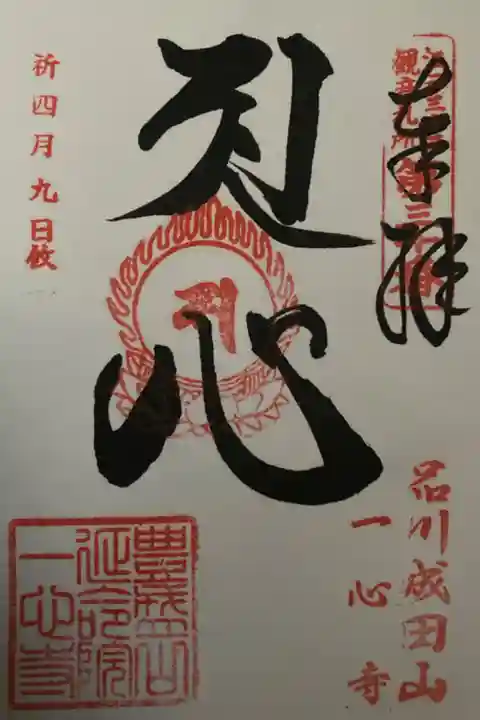 江戸三十三
観音札所第三十番
奉拝
心
祈四月九日攸
品川成田山
一心寺
豊盛山
延命院
一心寺